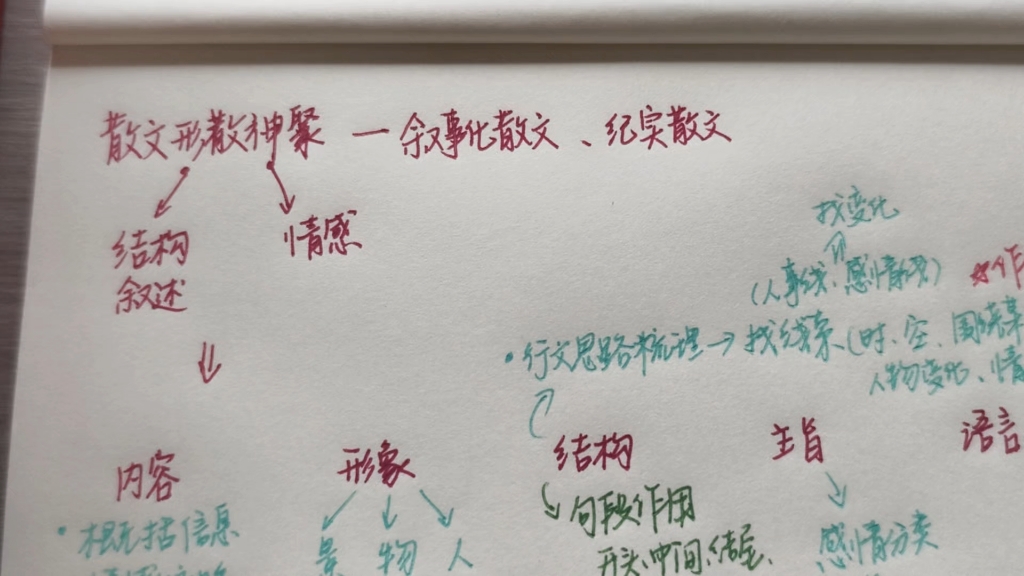 散文形散神聚 — 叙事化散文、纪实散文
结构
叙述
情感
找变化
(人事线、感情线)
作
•行文思路梳理→找线索(时、空、围绕某
人物变化、情
内容
形象
结构
主旨
语言
•概括信息
景 物 人
句段作用
开头、中间、结尾、
感情分类